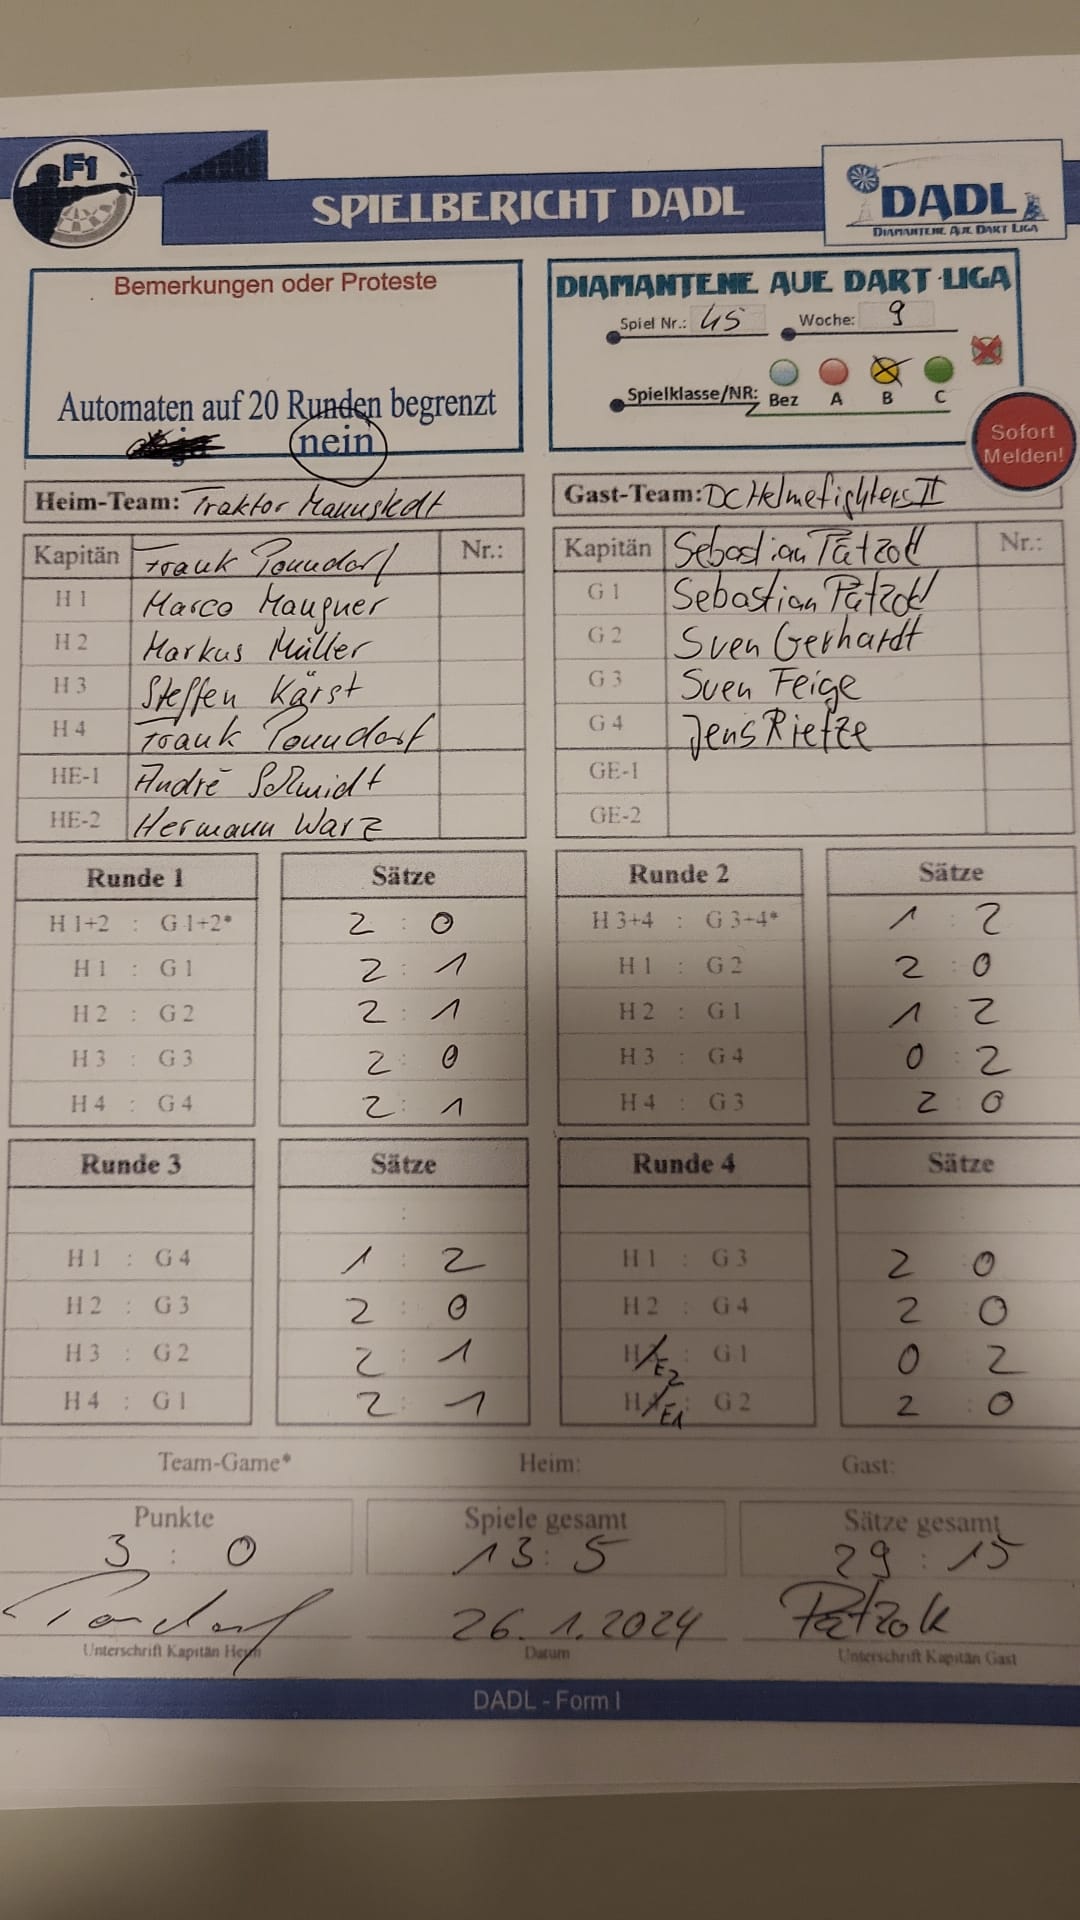 F1
SPIELBERICHT DADL
DADL
DIAMANTENE AUE DART LIGA
Bemerkungen oder Proteste
Automaten auf 20 Runden begrenzt
nein
DIAMANTENE AUE DART LIGA
Spiel Nr.: 45 Woche: 9
Spielklasse/NR: Bez A B C
Sofort
Melden!
Heim-Team: Traktor Mannstedt
Gast-Team: DC Helmefighters II
Kapitän Frank Ponndorf Nr.:
H 1 Marco Maugner
H 2 Markus Müller
H 3 Steffen Kärst
H 4 Frank Ponndorf
HE-1 André Schmidt
HE-2 Hermann Warz
Kapitän Sebastian Patzok Nr.:
G 1 Sebastian Patzok
G 2 Sven Gerhardt
G 3 Sven Feige
G 4 Jens Rietze
GE-1
GE-2
Runde 1 Sätze
H 1+2 : G 1+2* 2 : 0
H 1 : G 1 2 : 1
H 2 : G 2 2 : 1
H 3 : G 3 2 : 0
H 4 : G 4 2 : 1
Runde 2 Sätze
H 3+4 : G 3+4* 1 : 2
H 1 : G 2 2 : 0
H 2 : G 1 1 : 2
H 3 : G 4 0 : 2
H 4 : G 3 2 : 0
Runde 3 Sätze
:
H 1 : G 4 1 : 2
H 2 : G 3 2 : 0
H 3 : G 2 2 : 1
H 4 : G 1 2 : 1
Runde 4 Sätze
:
H 1 : G 3 2 0
H 2 : G 4 2 : 0
H E2 : G 1 0 2
H E1 : G 2 2 : 0
Team-Game* Heim: Gast:
Punkte Spiele gesamt Sätze gesamt
3 : 0 13 : 5 29 : 15
Ponndorf 26.1.2024 Patzok
Unterschrift Kapitän Heim Datum Unterschrift Kapitän Gast
DADL - Form I